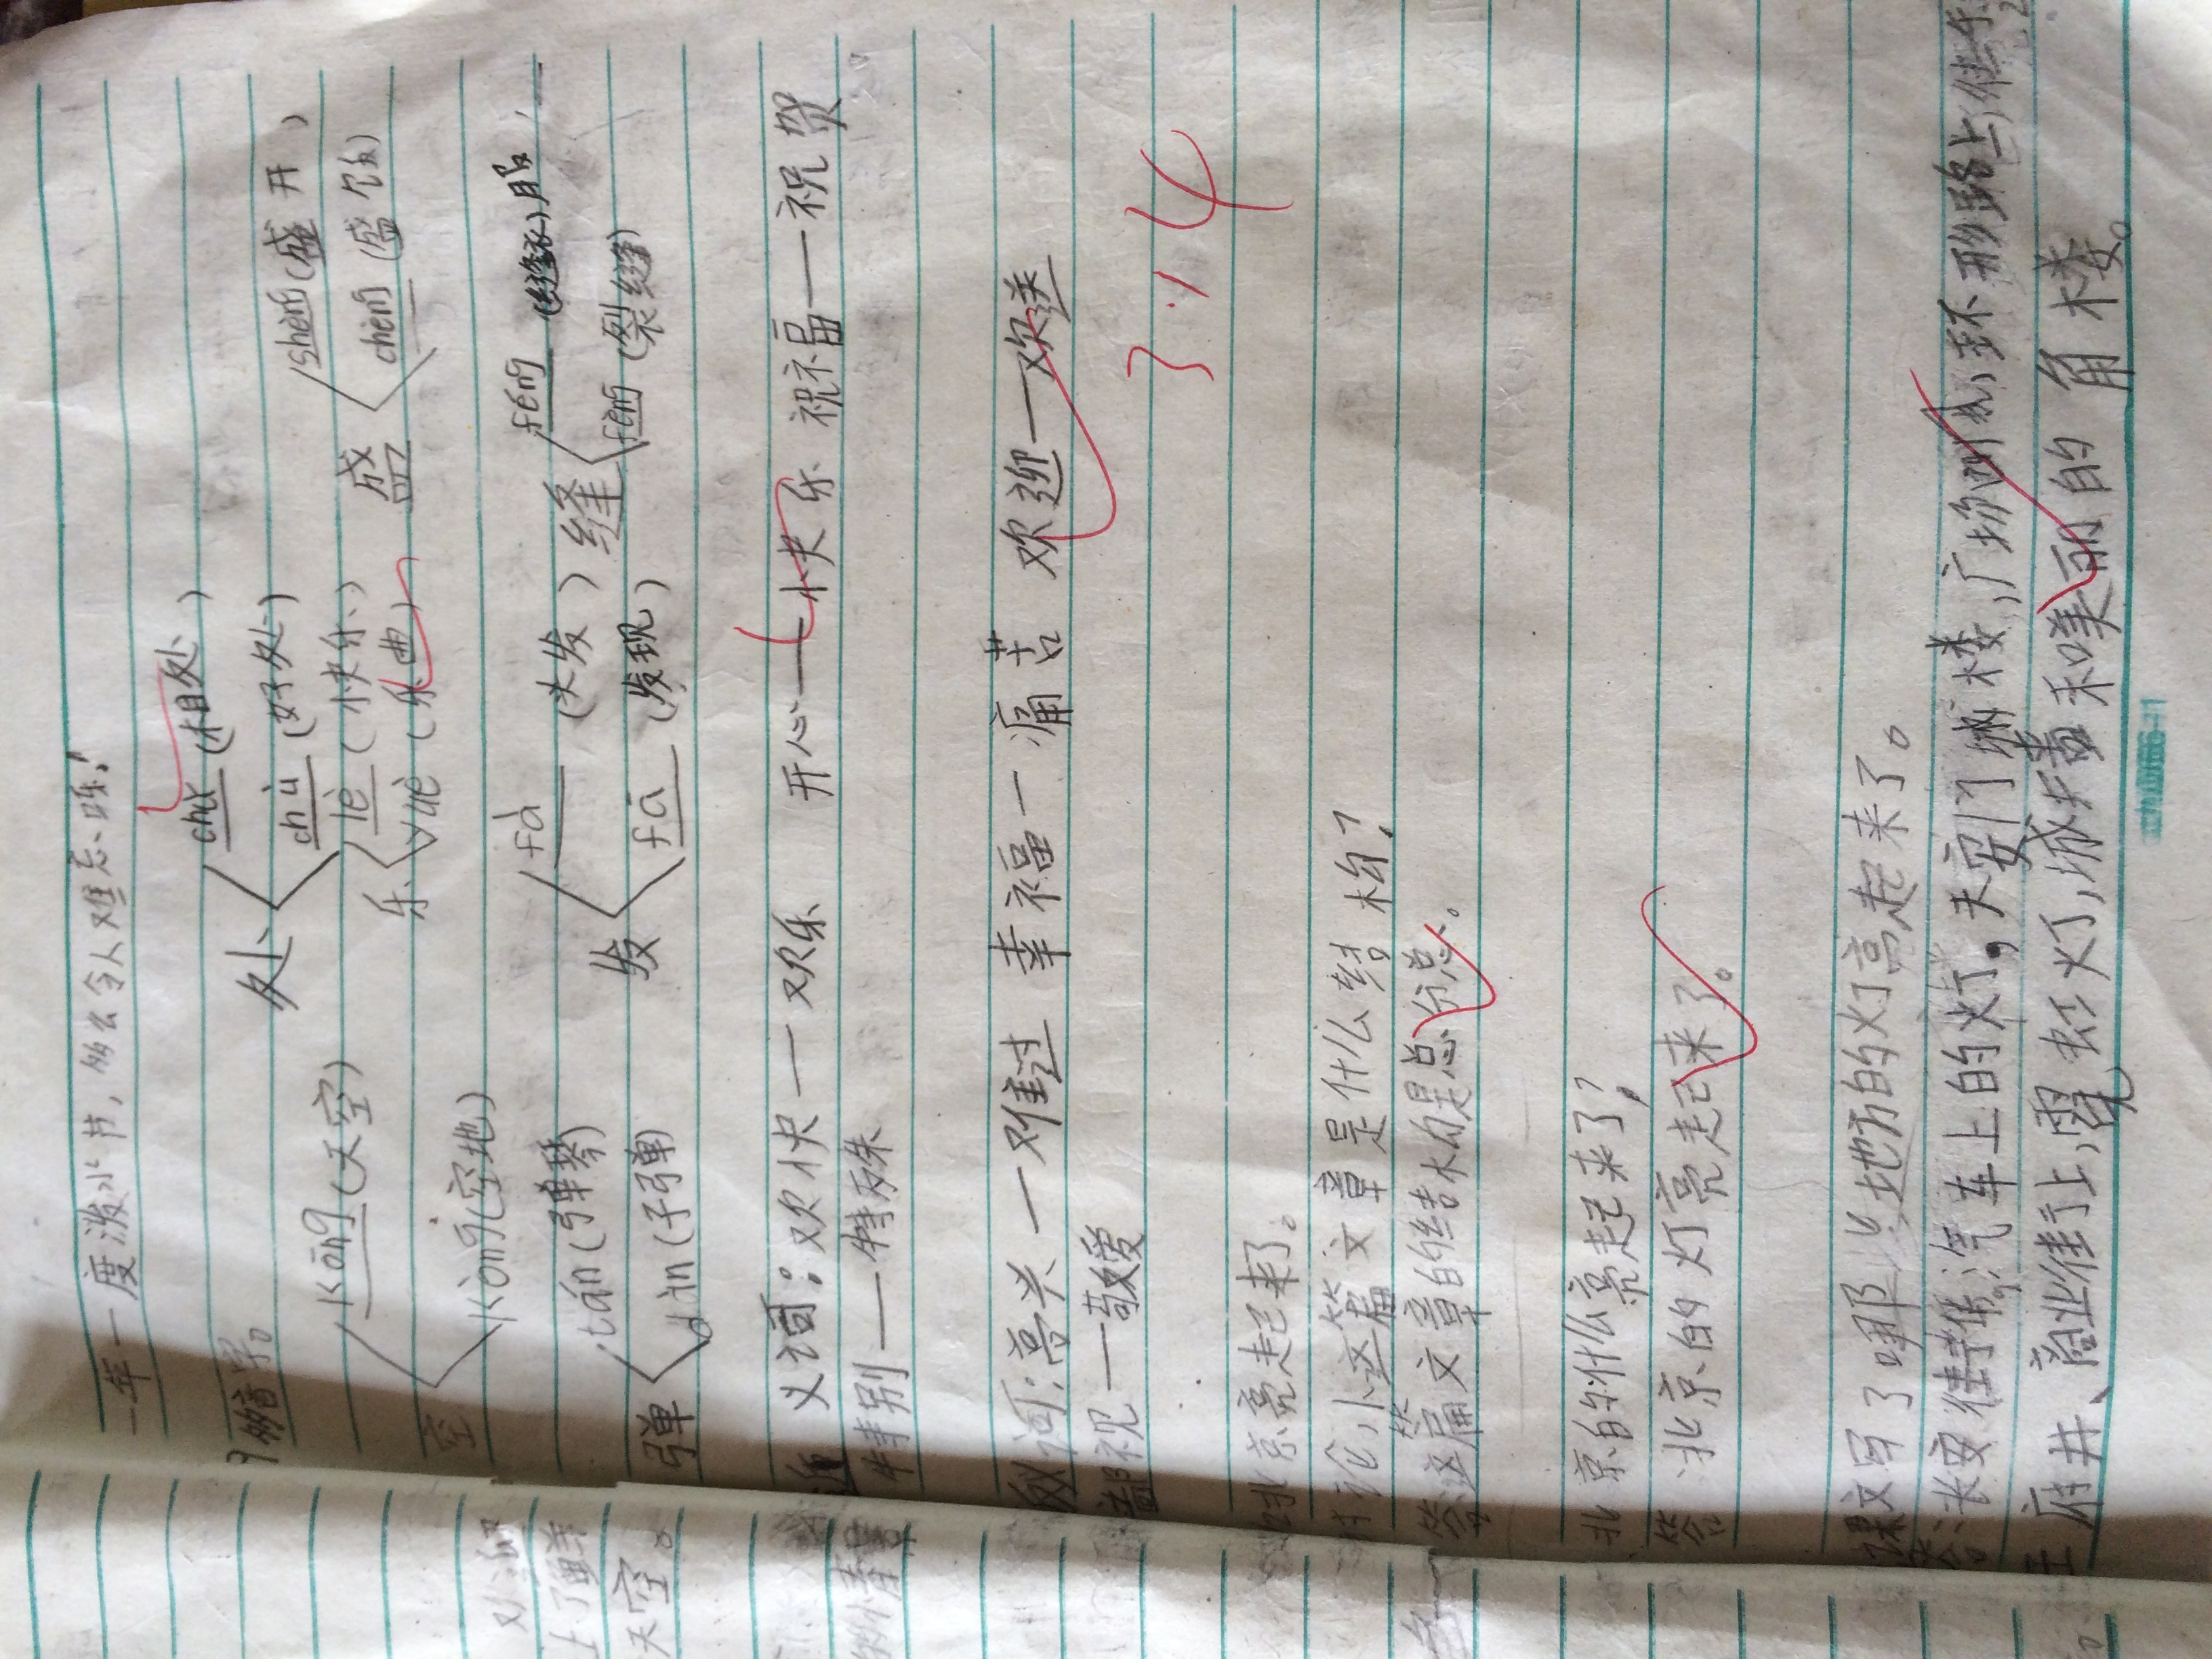 一年一度泼水节，多么令人难忘啊！
多音字。
处 chǔ (相处)
chù (好处)
空 kōng (天空)
kòng (空地)
乐 lè (快乐)
yuè (乐曲)
盛 shèng (盛开)
chéng (盛饭)
弹 tán (弹琴)
dàn (子弹)
发 fà (头发)
fā (发现)
缝 féng (缝衣)服
fèng (裂缝)
近义词：欢快—欢乐 开心—快乐 祝福—祝贺
特别—特殊
反词：高兴—难过 幸福—痛苦 欢迎—欢送
—敬爱
3.14
北京亮起来了。
讨论，小这篇文章是什么结构？
答这篇文章的结构是总分总。
北京的什么亮起来了？
答 北京的灯亮起来了。
课文写了哪些地方的灯亮起来了。
答：长安街 汽车上的灯。天安门城楼，广场四周，环形路上
王府井、商业街上，霓虹灯，城墙和美丽的角楼。
天空。